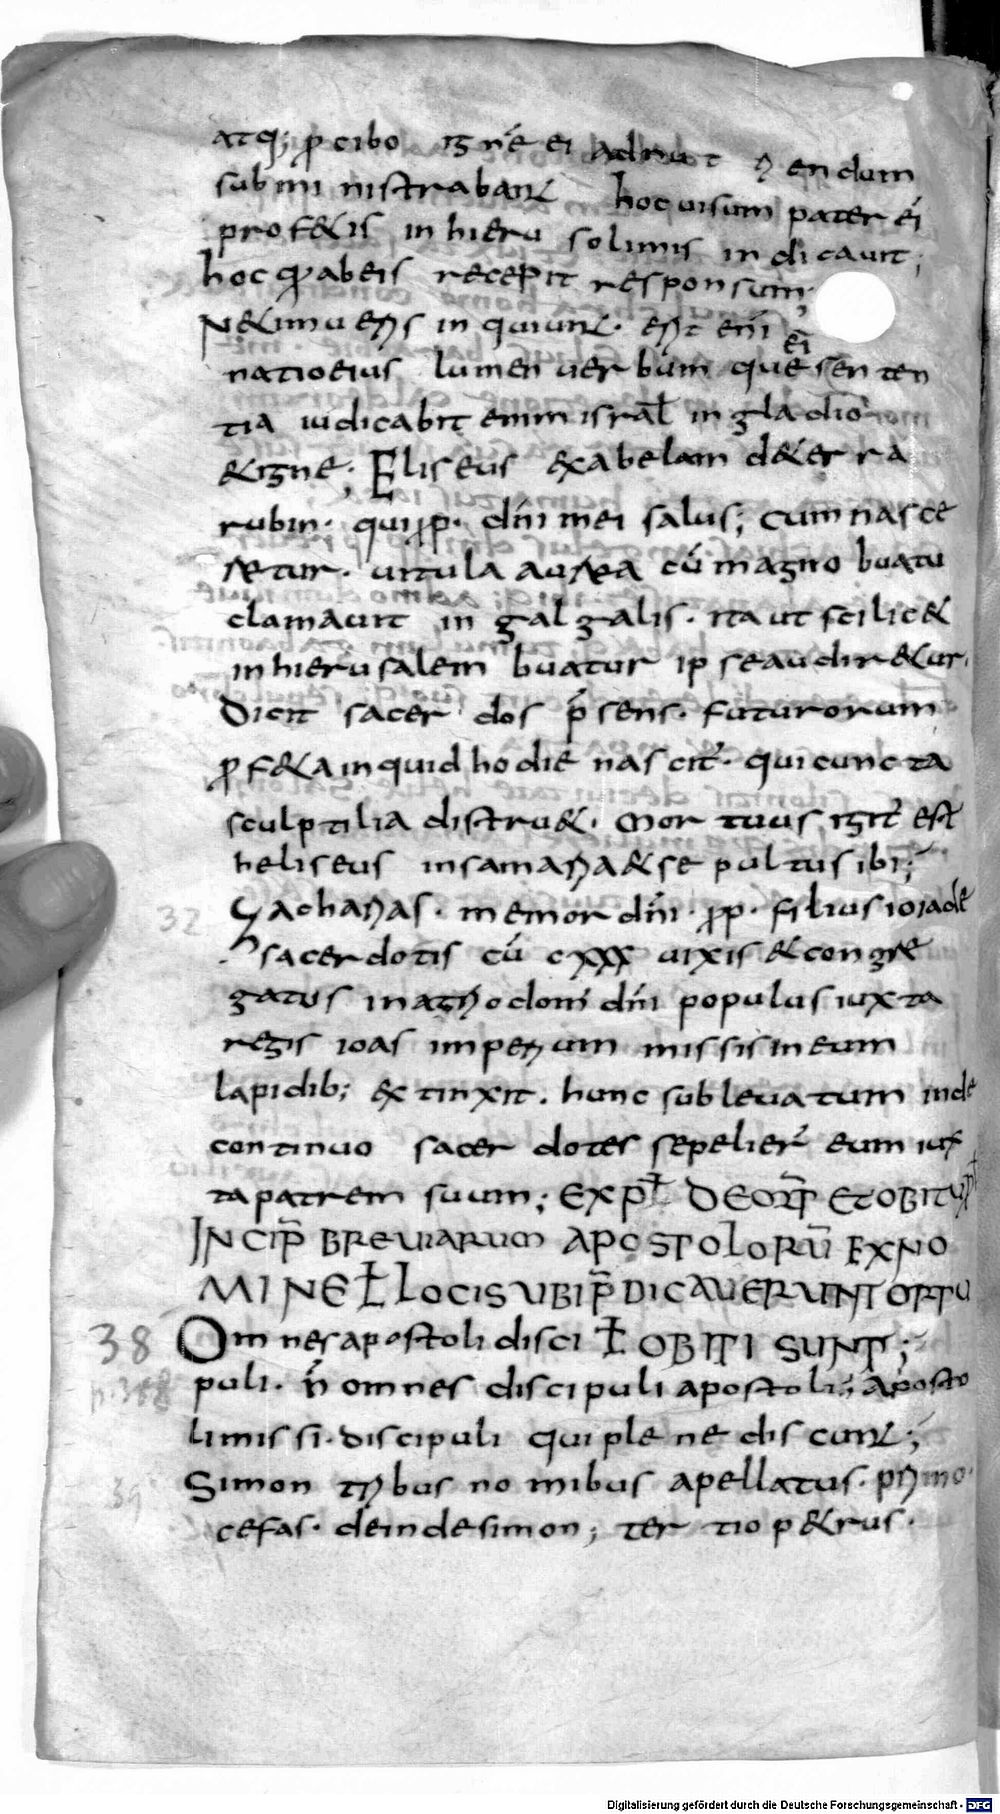 atq; ꝓ cibo ignē ei ad rodendum
subministraban&#x0305;t hoc uisum pater ei
prof&is in hieru solimis indicauit;
hoc qꝓabeis recepit responsum;
N& imueris in quiunt. erit eni
natio eius lumen uerbum que ei senten
tia iudicabit enim isral in gladio
& igne; Eliseus exabelam d& erra
rubin. qui ꝓp. dñi mei salus; cum nasce
retur. uitula aurea cū magno buatu
clamauit in galgalis. ita ut scilic&
in hierusalem buatur ipse audir&ur.
Dicit sacerdos p̄sens. futurorum
ꝓf&a inquid hodie nascit̄. qui cuncta
sculptilia distru&. mortuus igit̄ est
heliseus in samaria & sepultus ibi;
32 Zacharias. memor dñi. ꝓp. filius ioiade
sacerdotis cū cxxx uixis & congre
gatus in atrio domi dñi populus iuxta
regis ioas imperium missis in eum
lapidib; extinxit. hunc subleuatum inde
continuo sacerdotes sepelier̄ eum iux
ta patrem suum; EXPŁ DE ORT ET OBITU
INCIP̄ BREUIARUM APOSTOLORŪ EX NO
MINE Ł LOCIS UBI P̄DICAUERUNT ORTU
38 Omnes apostoli disci Ł OBITI SUNT;
p. 388 puli. ñ omnes discipuli apostoli; aposto
li missi. discipuli qui plene discunt;
39 Simon tribus nomibus apellatus. primo
cefas. deinde simon; tertio p&rus.
Digitalisierung gefördert durch die Deutsche Forschungsgemeinschaft - DFG